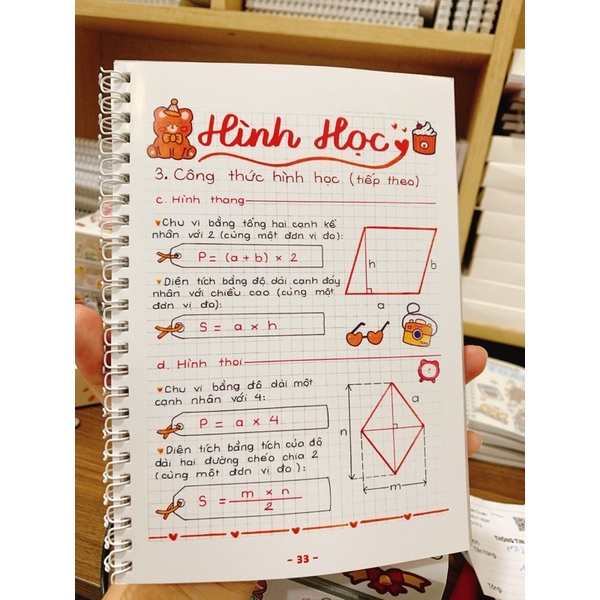 Hình Học
3. Công thức hình học (tiếp theo)
c. Hình thang
Chu vi bằng tổng hai cạnh kề
nhân với 2 (cùng một đơn vị đo):
P = (a + b) × 2
h
b
a
Diện tích bằng độ dài cạnh đáy
nhân với chiều cao (cùng một
đơn vị đo):
S = a × h
d. Hình thoi
Chu vi bằng độ dài một
cạnh nhân với 4:
P = a × 4
a
n
m
Diện tích bằng tích của độ
dài hai đường chéo chia 2
(cùng một đơn vị đo):
S = m × n
2
- 33 -
THÔNG TIN